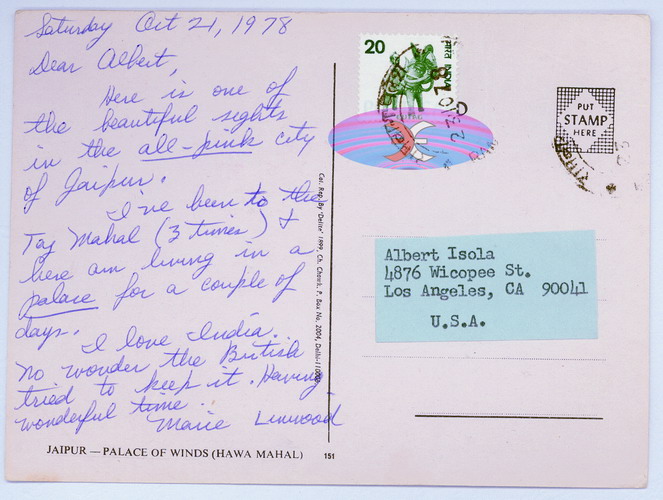 Saturday Oct 21, 1978
Dear Albert,
Here is one of
the beautiful sights
in the all-pink city
of Jaipur.
I've been to the
Taj Mahal (3 times) &
here am living in a
palace for a couple of
days.
I love India.
No wonder the British
tried to keep it. Having
wonderful time.
Marie Linwood
JAIPUR — PALACE OF WINDS (HAWA MAHAL) 151
Col. Rep. By 'Delite' 1999, Ch. Chowk, P. Box No. 2004, Delhi-11000
20
INDIA
PUT
STAMP
HERE
Albert Isola
4876 Wicopee St.
Los Angeles, CA 90041
U.S.A.